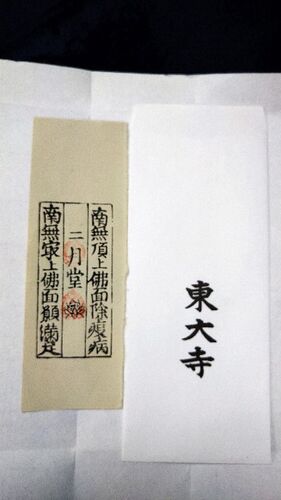 東大寺
南無頂上佛面除疫病
二月堂
南無㝡上佛面願滿足